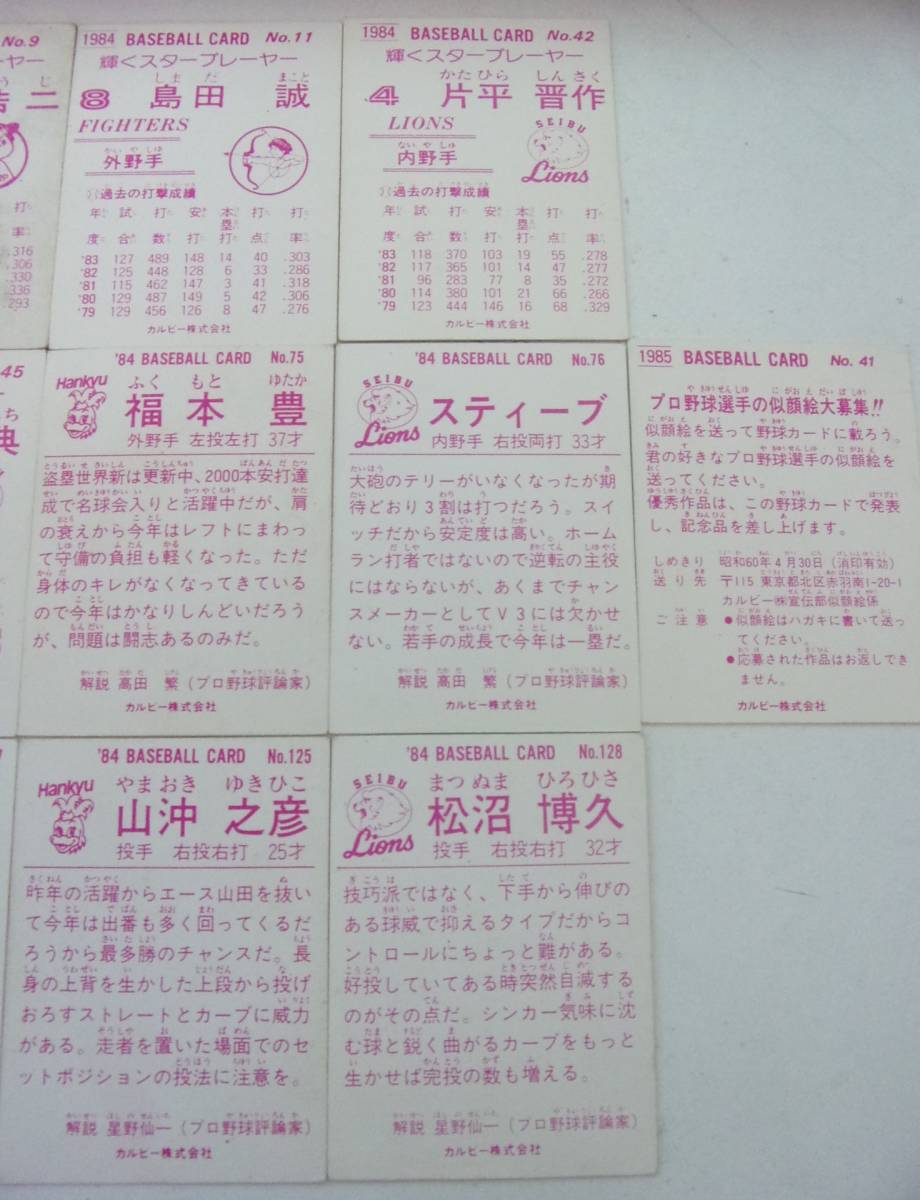 No.9
ーヤー
うじ
浩二
打
率
.316
.306
.330
.336
.293
1984 BASEBALL CARD No.11
輝くスタープレーヤー
しまだ まこと
8 島田 誠
FIGHTERS
がいやしゅ
外野手
過去の打撃成績
年 試 打 安 本 打 打
度 合 数 打 塁打 点 率
'83 127 489 148 14 40 .303
'82 125 448 128 6 33 .286
'81 115 462 147 3 41 .318
'80 129 487 149 5 42 .306
'79 129 456 126 8 47 .276
カルビー株式会社
1984 BASEBALL CARD No.42
輝くスタープレーヤー
かたひら しんさく
4 片平 晋作
LIONS
SEIBU
Lions
ないやしゅ
内野手
過去の打撃成績
年 試 打 安 本 打 打
度 合 数 打 塁打 点 率
'83 118 370 103 19 55 .278
'82 117 365 101 14 47 .277
'81 96 283 77 8 35 .272
'80 114 380 101 21 66 .266
'79 123 444 146 16 68 .329
カルビー株式会社
45
典
'84 BASEBALL CARD No.75
Hankyu
ふくもと ゆたか
福本 豊
外野手 左投左打 37才
盗塁世界新は更新中、2000本安打達
成で名球会入りと活躍中だが、肩
の衰えから今年はレフトにまわっ
て守備の負担も軽くなった。ただ
身体のキレがなくなってきている
ので今年はかなりしんどいだろう
が、問題は闘志あるのみだ。
解説 高田 繁(プロ野球評論家)
カルビー株式会社
'84 BASEBALL CARD No.76
SEIBU
Lions
スティーブ
内野手 右投両打 33才
大砲のテリーがいなくなったが期
待どおり3割は打つだろう。スイ
ッチだから安定度は高い。ホーム
ラン打者ではないので逆転の主役
にはならないが、あくまでチャン
スメーカーとしてV3には欠かせ
ない。若手の成長で今年は一塁だ。
解説 高田 繁(プロ野球評論家)
カルビー株式会社
1985 BASEBALL CARD No. 41
プロ野球選手の似顔絵大募集!!
似顔絵を送って野球カードに載ろう。
君の好きなプロ野球選手の似顔絵を
送ってください。
優秀作品は、この野球カードで発表
し、記念品を差し上げます。
しめきり 昭和60年4月30日(消印有効)
送り先 〒115 東京都北区赤羽南1-20-1
カルビー㈱宣伝部似顔絵係
ご注意 ●似顔絵はハガキに書いて送っ
てください。
●応募された作品はお返しでき
ません。
カルビー株式会社
'84 BASEBALL CARD No.125
Hankyu
やまおき ゆきひこ
山沖 之彦
投手 右投右打 25才
昨年の活躍からエース山田を抜い
て今年は出番も多く回ってくるだ
ろうから最多勝のチャンスだ。長
身の上背を生かした上段から投げ
おろすストレートとカーブに威力
がある。走者を置いた場面でのセ
ットポジションの投法に注意を。
解説 星野仙一(プロ野球評論家)
カルビー株式会社
'84 BASEBALL CARD No.128
SEIBU
Lions
まつぬま ひろひさ
松沼 博久
投手 右投右打 32才
技巧派ではなく、下手から伸びの
ある球威で抑えるタイプだからコ
ントロールにちょっと難がある。
好投していてある時突然自滅する
のがその点だ。シンカー気味に沈
む球と鋭く曲がるカーブをもっと
生かせば完投の数も増える。
解説 星野仙一(プロ野球評論家)
カルビー株式会社